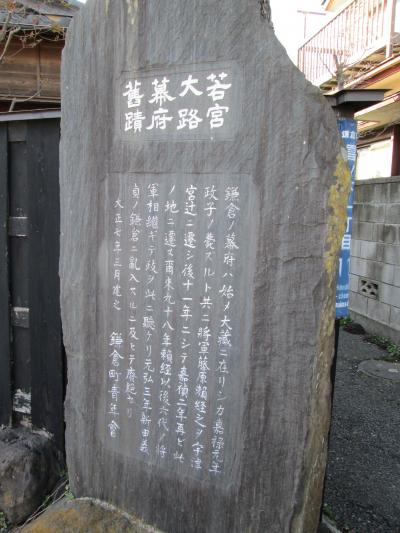 若宮
大路
幕府
舊蹟
鎌倉ノ幕府ハ始メ大藏ニ在リシカ嘉禄元年
政子ノ薨ズルト共ニ將軍藤原頼経之ヲ宇津
宮辻ニ遷シ後十一年ニシテ嘉禎二年再ビ此
ノ地ニ遷ス爾来九十八年頼経以後六代ノ将
軍相継ギテ政ヲ此ニ聴ケリ元弘三年新田義
貞ノ鎌倉ニ乱入スルニ及ヒテ府絶セリ
大正七年三月建之 鎌倉町青年會